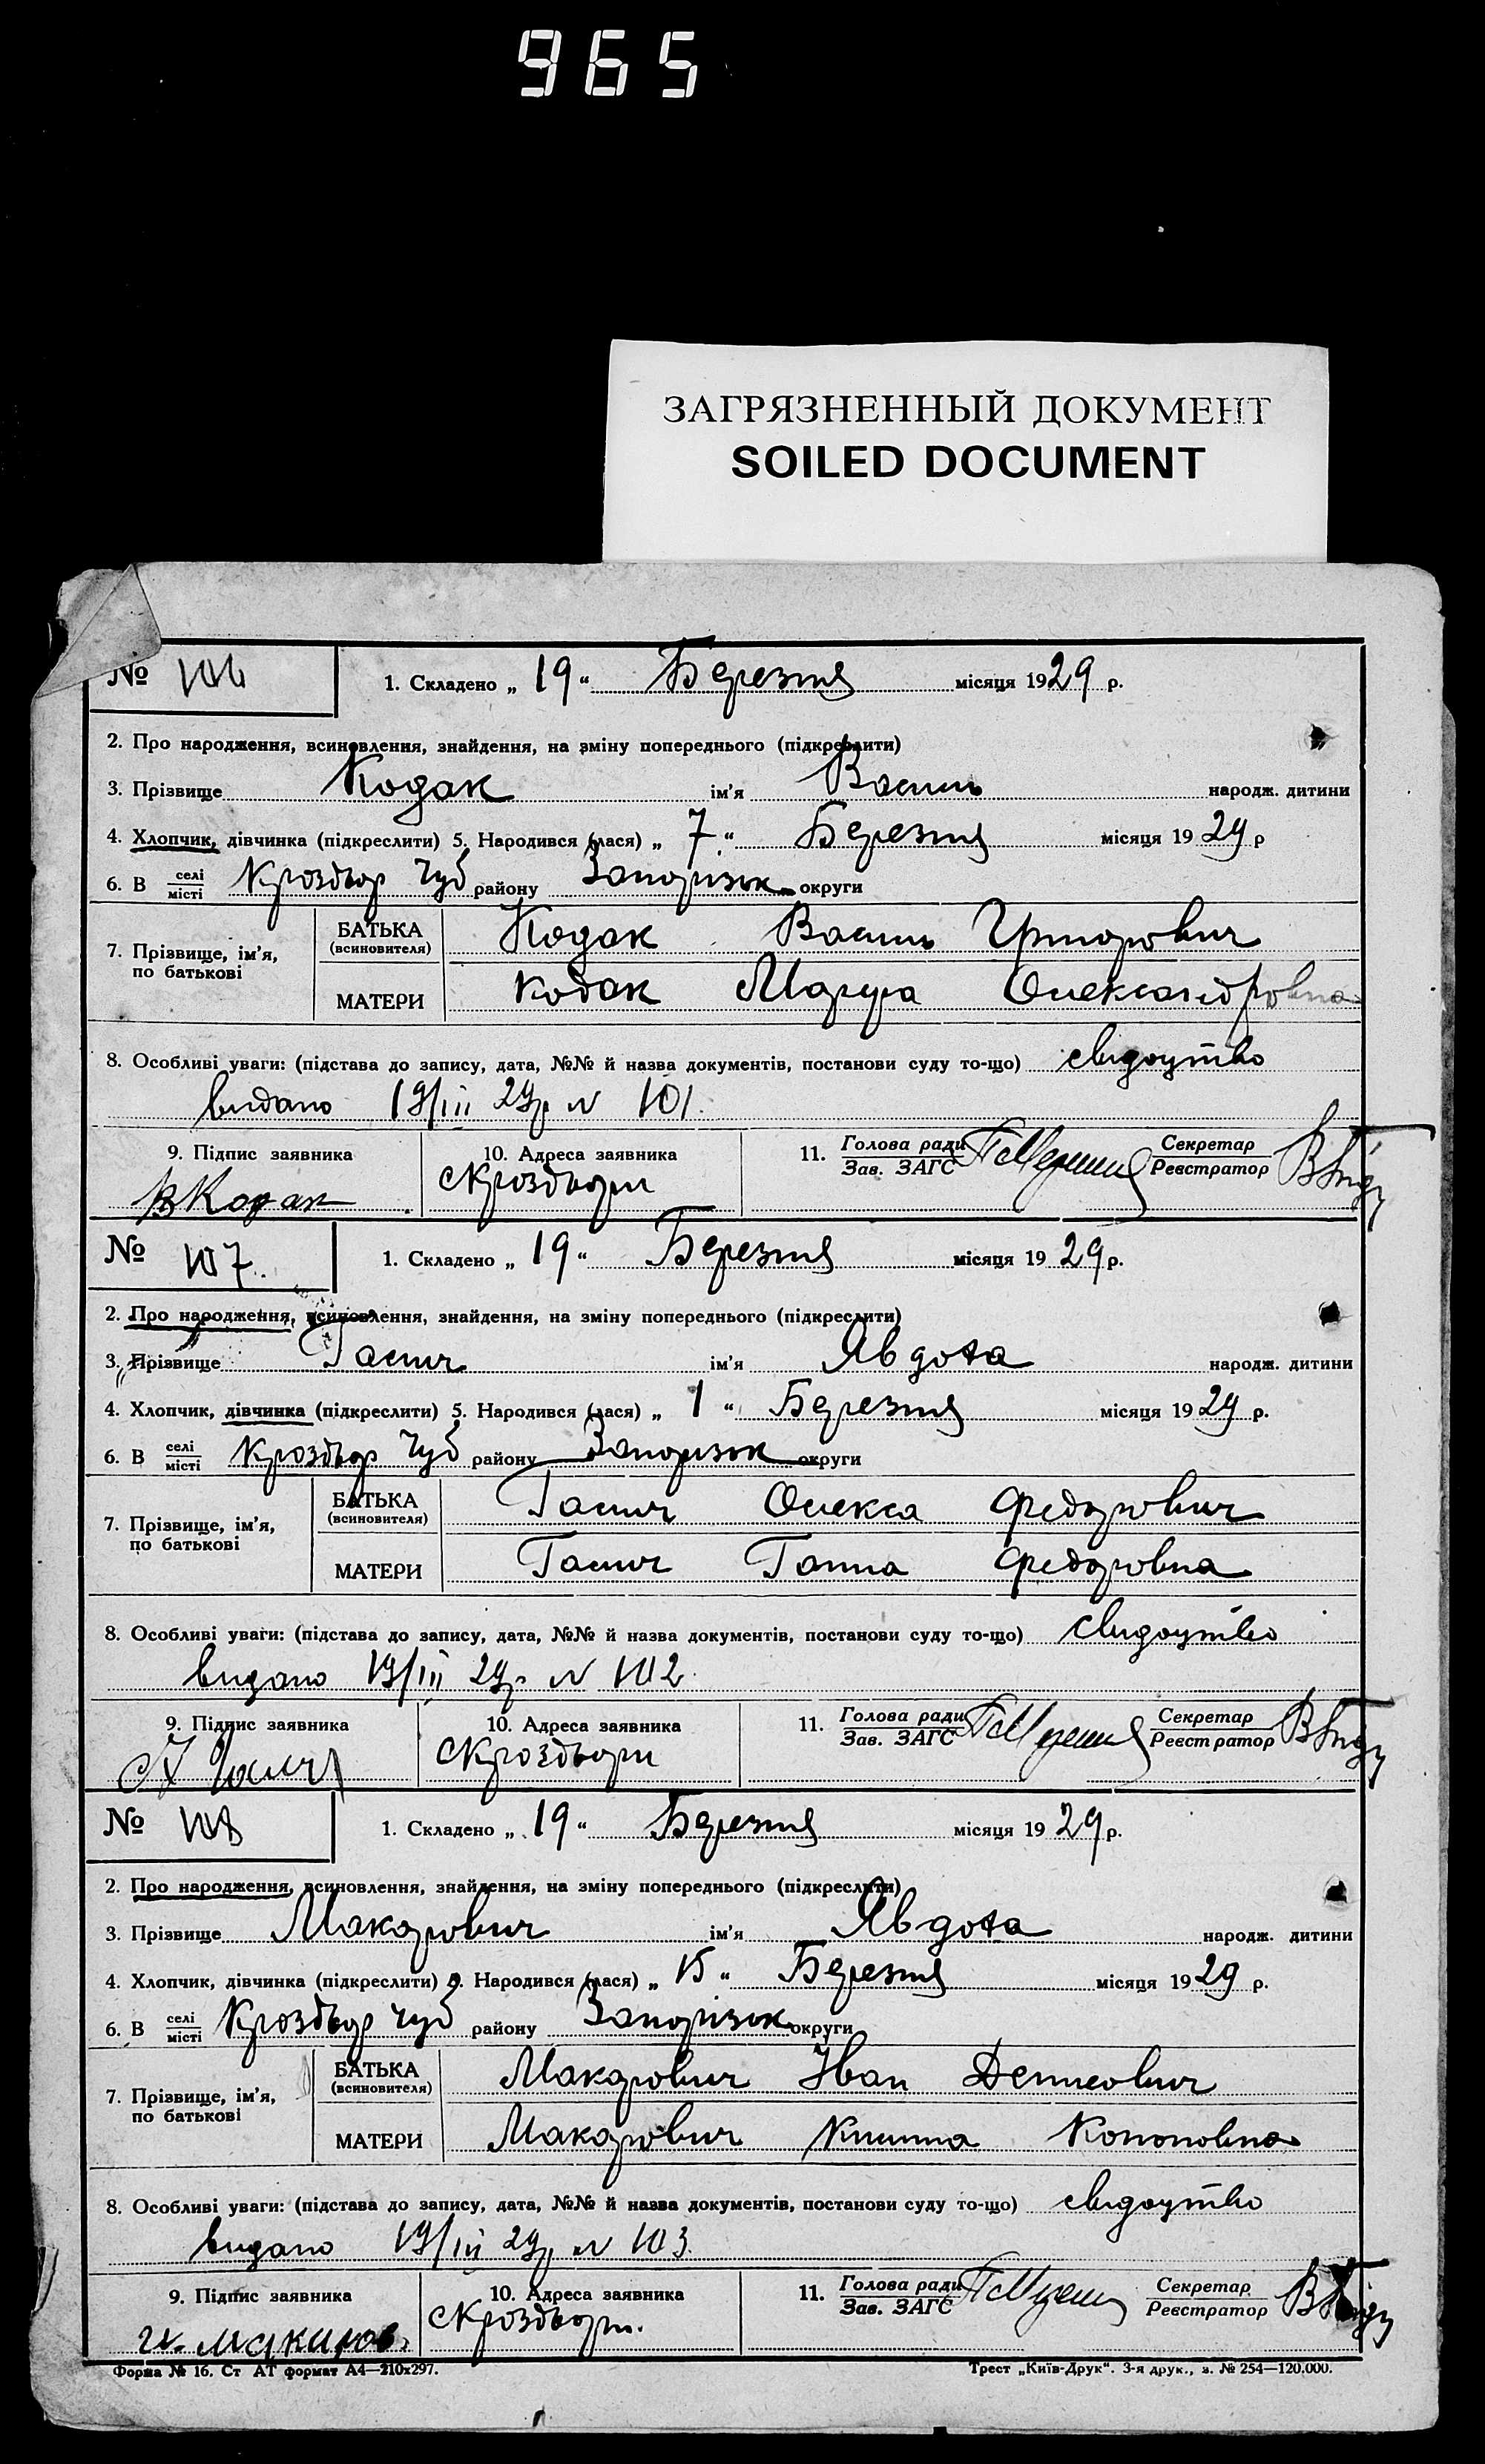 965
ЗАГРЯЗНЕННЫЙ ДОКУМЕНТ
SOILED DOCUMENT
№ 106 1. Складено „ 19 “ Березня місяця 1929 р.
2. Про народження, всиновлення, знайдення, на зміну попереднього (підкреслити)
3. Прізвище Кодак ім'я Василь народж. дитини
4. Хлопчик, дівчинка (підкреслити) 5. Народився (лася) „ 7 “ Березня місяця 1929 р
6. В селі місті Кроздвор Чуб району Запорізьк округи
7. Прізвище, ім'я, по батькові
БАТЬКА (всиновителя) Кодак Василь Григорович
МАТЕРИ Кодак Марфа Олександровна
8. Особливі уваги: (підстава до запису, дата, №№ й назва документів, постанови суду то-що) свидоцтво
видано 19/III 29р N 101.
9. Підпис заявника 10. Адреса заявника 11. Голова ради Зав. ЗАГС Секретар Реєстратор
В Кодак с Кроздвори
№ 107. 1. Складено „ 19 “ Березня місяця 19 29 р.
2. Про народження, всиновлення, знайдення, на зміну попереднього (підкреслити)
3. Прізвище Гасич ім'я Явдоха народж. дитини
4. Хлопчик, дівчинка (підкреслити) 5. Народився (лася) „ 1 “ Березня місяця 19 29 р.
6. В селі місті Кроздвор Чуб району Запоризьк округи
7. Прізвище, ім'я, по батькові
БАТЬКА (всиновителя) Гасич Олекса Федорович
МАТЕРИ Гасич Ганна Федоровна
8. Особливі уваги: (підстава до запису, дата, №№ й назва документів, постанови суду то-що) свидоцтво
видано 19/III 29р. N 102.
9. Підпис заявника 10. Адреса заявника 11. Голова ради Зав. ЗАГС Секретар Реєстратор
с Кроздвори
№ 108 1. Складено „ 19 “ Березня місяця 19 29 р.
2. Про народження, всиновлення, знайдення, на зміну попереднього (підкреслити)
3. Прізвище Макарович ім'я Явдоха народж. дитини
4. Хлопчик, дівчинка (підкреслити) 5. Народився (лася) „ 15 “ Березня місяця 19 29 р.
6. В селі місті Кроздвор Чуб району Запорізьк округи
7. Прізвище, ім'я, по батькові
БАТЬКА (всиновителя) Макарович Іван Денисович
МАТЕРИ Макарович Килина Кононовна
8. Особливі уваги: (підстава до запису, дата, №№ й назва документів, постанови суду то-що) свидоцтво
видано 19/III 29р N 103.
9. Підпис заявника 10. Адреса заявника 11. Голова ради Зав. ЗАГС Секретар Реєстратор
с Кроздвори.
Форма № 16. Ст АТ формат А4—210х297. Трест „Київ-Друк“. 3-я друк., з. № 254—120.000.